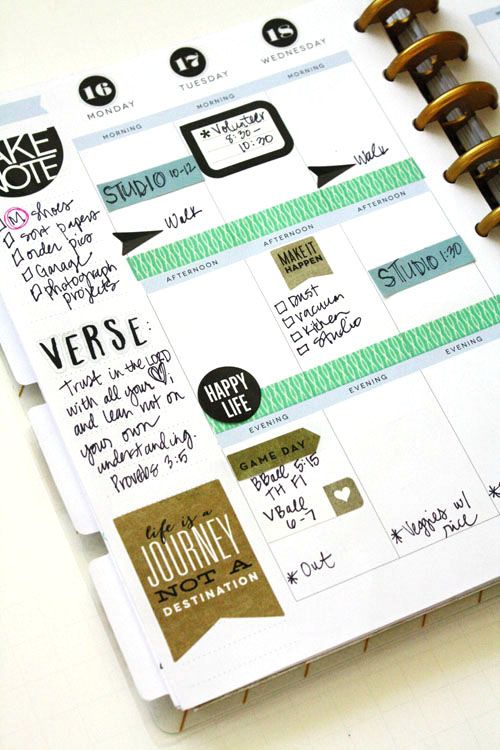 16
17
18
MONDAY
TUESDAY
WEDNESDAY
MORNING
MORNING
MORNING
AKE
NOTE
M Shoes
Sort Papers
order pics
Garage
Photograph
projects
VERSE:
Trust in the LORD
with all your ♡,
and lean not on
your own
understanding.
Proverbs 3:5
life is a
JOURNEY
NOT A
DESTINATION
STUDIO 10-12
Walk
* Volunteer
8:30-
10:30
Walk
AFTERNOON
AFTERNOON
AFTERNOON
MAKE IT
HAPPEN
Dust
Vacuum
Kitchen
Studio
STUDIO 1:30
HAPPY
LIFE
EVENING
EVENING
EVENING
GAME DAY
BBall 5:15
TH FI
VBall
6-7
* Out
* Veggies w/
rice